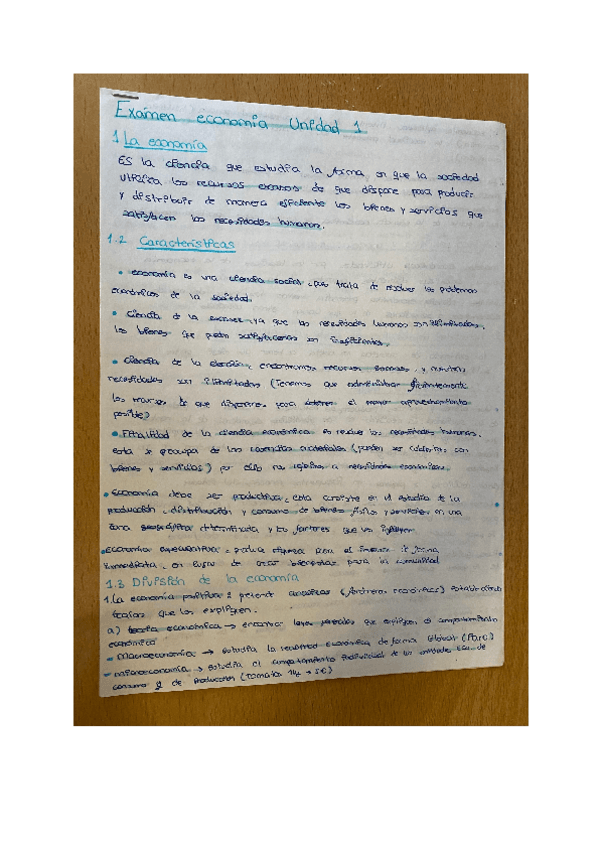 Examen economía Unidad 1
1 La economía
Es la ciencia que estudia la forma en que la sociedad
utiliza los recursos escasos de que dispone para producir
y distribuir de manera eficiente los bienes y servicios que
satisfacen las necesidades humanas.
1.2 Características
• economía es una ciencia social, pues trata de resolver los problemas
económicos de la sociedad.
• Ciencia de la escasez, ya que las necesidades humanas son ilimitadas,
los bienes que pueden satisfacerlas son insuficientes.
• Ciencia de la elección, encontramos recursos escasos, y nuestras
necesidades son ilimitadas (Tenemos que administrar eficientemente
los recursos de que disponemos para obtener el mayor aprovechamiento
posible)
• Finalidad de la ciencia económica es resolver las necesidades humanas,
esta se preocupa de las materiales (pueden ser cubiertas con
bienes y servicios) por ello nos a necesidades económicas.
• Economía debe ser productiva, esta consiste en el estudio de la
producción, distribución y consumo de bienes y servicios en una
zona geográfica determinada y los factores que
• Economía especulativa = produce riqueza para el de forma
inmediata, en lugar de crear para la comunidad
1.3 División de la economía
1. La economía positiva = científicas (fenómenos económicos)
teorías que los expliquen.
a) teoría económica → encontrar leyes generales que expliquen el comportamiento
económico
- Macroeconomía → estudia la realidad económica de forma Global (Paro)
- microeconomía → estudia el comportamiento individual de las unidades eco. de
consumo y de producción (tomates 1kg → 5€)